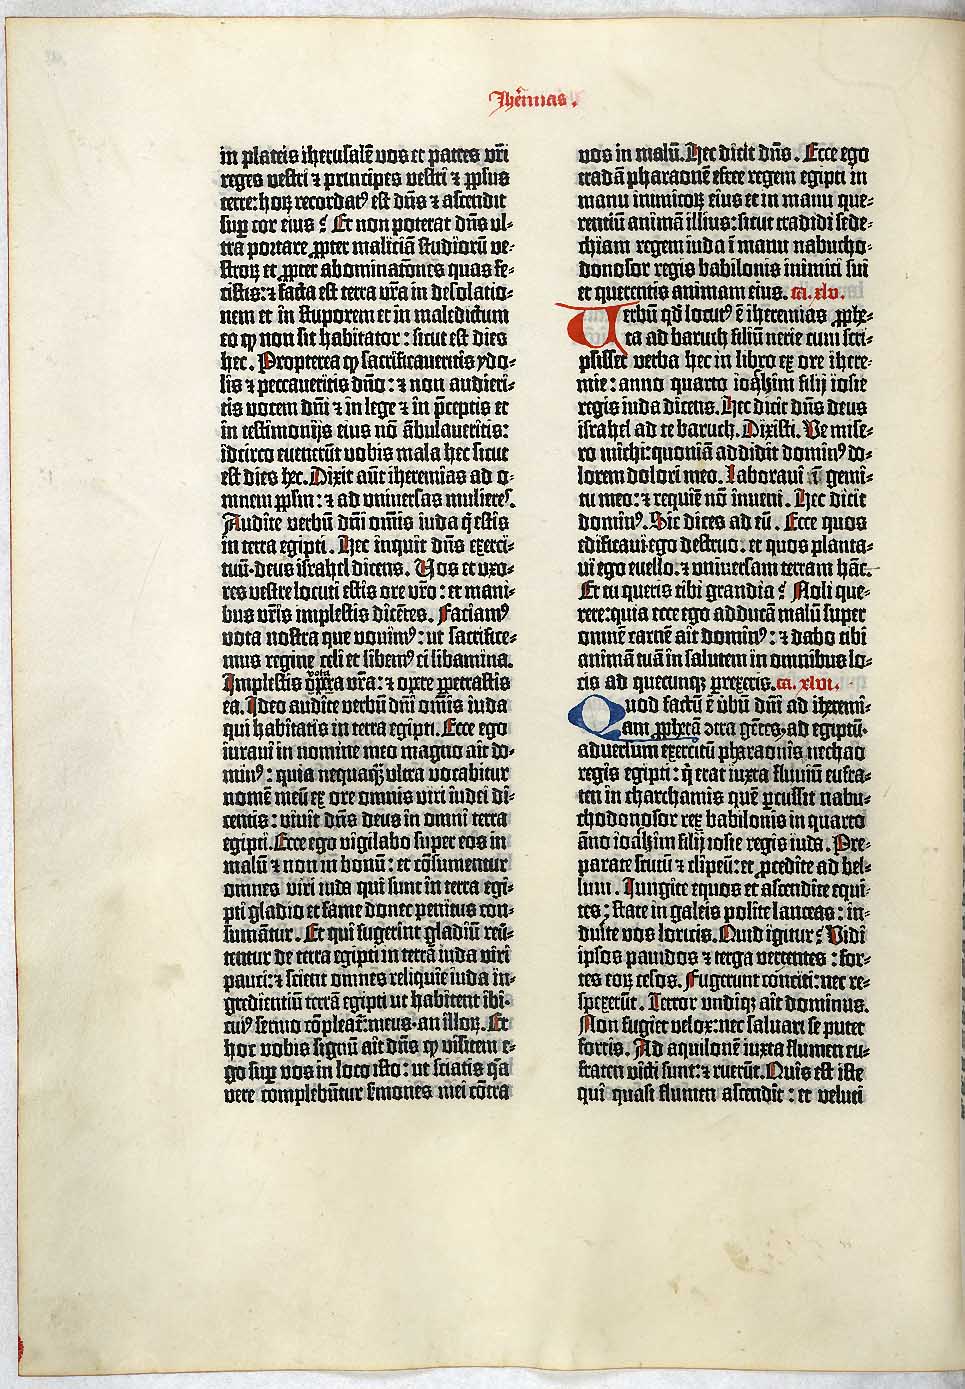 Jheremias.
in plateis iherusalē vos et patres vr̄i
reges vestri ⁊ principes vestri ⁊ ꝓplus
terre: hoꝝ recordatꝰ est dn̄s ⁊ ascendit
suꝑ cor eius? Et non poterat dn̄s ul-
tra portare ꝓpter maliciā studiorū ve-
stroꝝ et ꝓpter abominatōnes quas fe-
cistis: ⁊ facta est terra vr̄a in desolatio-
nem et in stuporem et in maledictum
eo ꝙ non sit habitator: sicut est dies
hec. Propterea ꝙ sacrificaueritis ydo-
lis ⁊ peccaueritis dn̄o: ⁊ non audieri-
tis vocem dn̄i ⁊ in lege ⁊ in p̄ceptis et
in testimonijs eius nō ābulaueritis:
idcirco euenerūt vobis mala hec sicut
est dies hec. Dixit aūt iheremias ad o-
mnem ꝓplm: ⁊ ad vniuersas mulieres.
Audite verbū dn̄i om̄is iuda q̄ estis
in terra egipti. Hec inquit dn̄s exerci-
tuū deus israhel dicens. Uos et vxo-
res vestre locuti estis ore vr̄o: et mani-
bus vr̄is implestis dicētes. Faciamꝰ
vota nostra que vouimꝰ: ut sacrifice-
mus regine celi et libemꝰ ei libamina.
Implestis vota vr̄a: ⁊ opere ꝑpetrastis
ea. Ideo audite verbū dn̄i om̄is iuda
qui habitatis in terra egipti. Ecce ego
iuraui in nomine meo magno ait do-
minꝰ: quia nequaꝗ̄ vltra vocabitur
nomē meū ex ore omnis viri iudei di-
centis: viuit dn̄s deus in omni terra
egipti. Ecce ego vigilabo super eos in
malū ⁊ non in bonū: et cōsumentur
omnes viri iuda qui sunt in terra egi-
pti gladio et fame donec penitus con-
sumātur. Et qui fugerint gladiū reū-
tentur de terra egipti in terrā iuda viri
pauci: ⁊ scient omnes reliquie iuda in-
gredientiū terrā egipti ut habitent ibi:
cuiꝰ sermo cōpleat̄: meus an illoꝝ. Et
hoc vobis signū ait dn̄s ꝙ visitem e-
go suꝑ vos in loco isto: ut sciatis q̄a
vere complebūtur s̄mones mei cōtra
vos in malū. Hec dicit dn̄s. Ecce ego
tradā pharaonē efree regem egipti in
manu inimicoꝝ eius et in manu que-
rentiū animā illius: sicut tradidi sede-
chiam regem iuda ī manu nabucho-
donosor regis babilonis inimici sui
et querentis animam eius. ca. xlv.
Uerbū qd̄ locutꝰ ē iheremias ꝓphe-
ta ad baruch filiū nerie cum scri-
psisset verba hec in libro ex ore ihere-
mie: anno quarto ioachim filij iosie
regis iuda dicens. Hec dicit dn̄s deus
israhel ad te baruch. Dixisti. Ve mise-
ro michi: quoniā addidit dominꝰ do-
lorem dolori meo. Laboraui ī gemi-
tu meo: ⁊ requiē nō inueni. Hec dicit
dominꝰ. Sic dices ad eū. Ecce quos
edificaui ego destruo: et quos planta-
ui ego euello. ⁊ vniuersam terram hāc.
Et tu queris tibi grandia? Noli que-
rere: quia ecce ego adducā malū super
omnē carnē ait dominꝰ: ⁊ dabo tibi
animā tuā in salutem in omnibus lo-
cis ad quecunqꝫ ꝑrexeris. ca. xlvi.
Quod factū ē v̄bū dn̄i ad iheremi-
am ꝓphetā ↄtra gētes, ad egiptū,
aduersum exercitū pharaonis nechao
regis egipti: q̄ erat iuxta fluuiū eufra-
ten in charchamis quē ꝑcussit nabu-
chodonosor rex babilonis in quarto
āno ioachim filij iosie regis iuda. Pre-
parate scutū ⁊ clipeū: et ꝓcedite ad bel-
lum. Iungite equos et ascendite equi-
tes: state in galeis polite lanceas: in-
duite vos loricis. Quid igitur? Vidi
ipsos pauidos ⁊ terga vertentes: for-
tes eoꝝ cesos. Fugerunt concīti: nec re-
spexerūt. Terror undiqꝫ ait dominus.
Non fugiet velox: nec saluari se putet
fortis. Ad aquilonē iuxta flumen eu-
fraten victi sunt: ⁊ ruerūt. Quis est iste
qui quasi flumen ascendit: et veluti